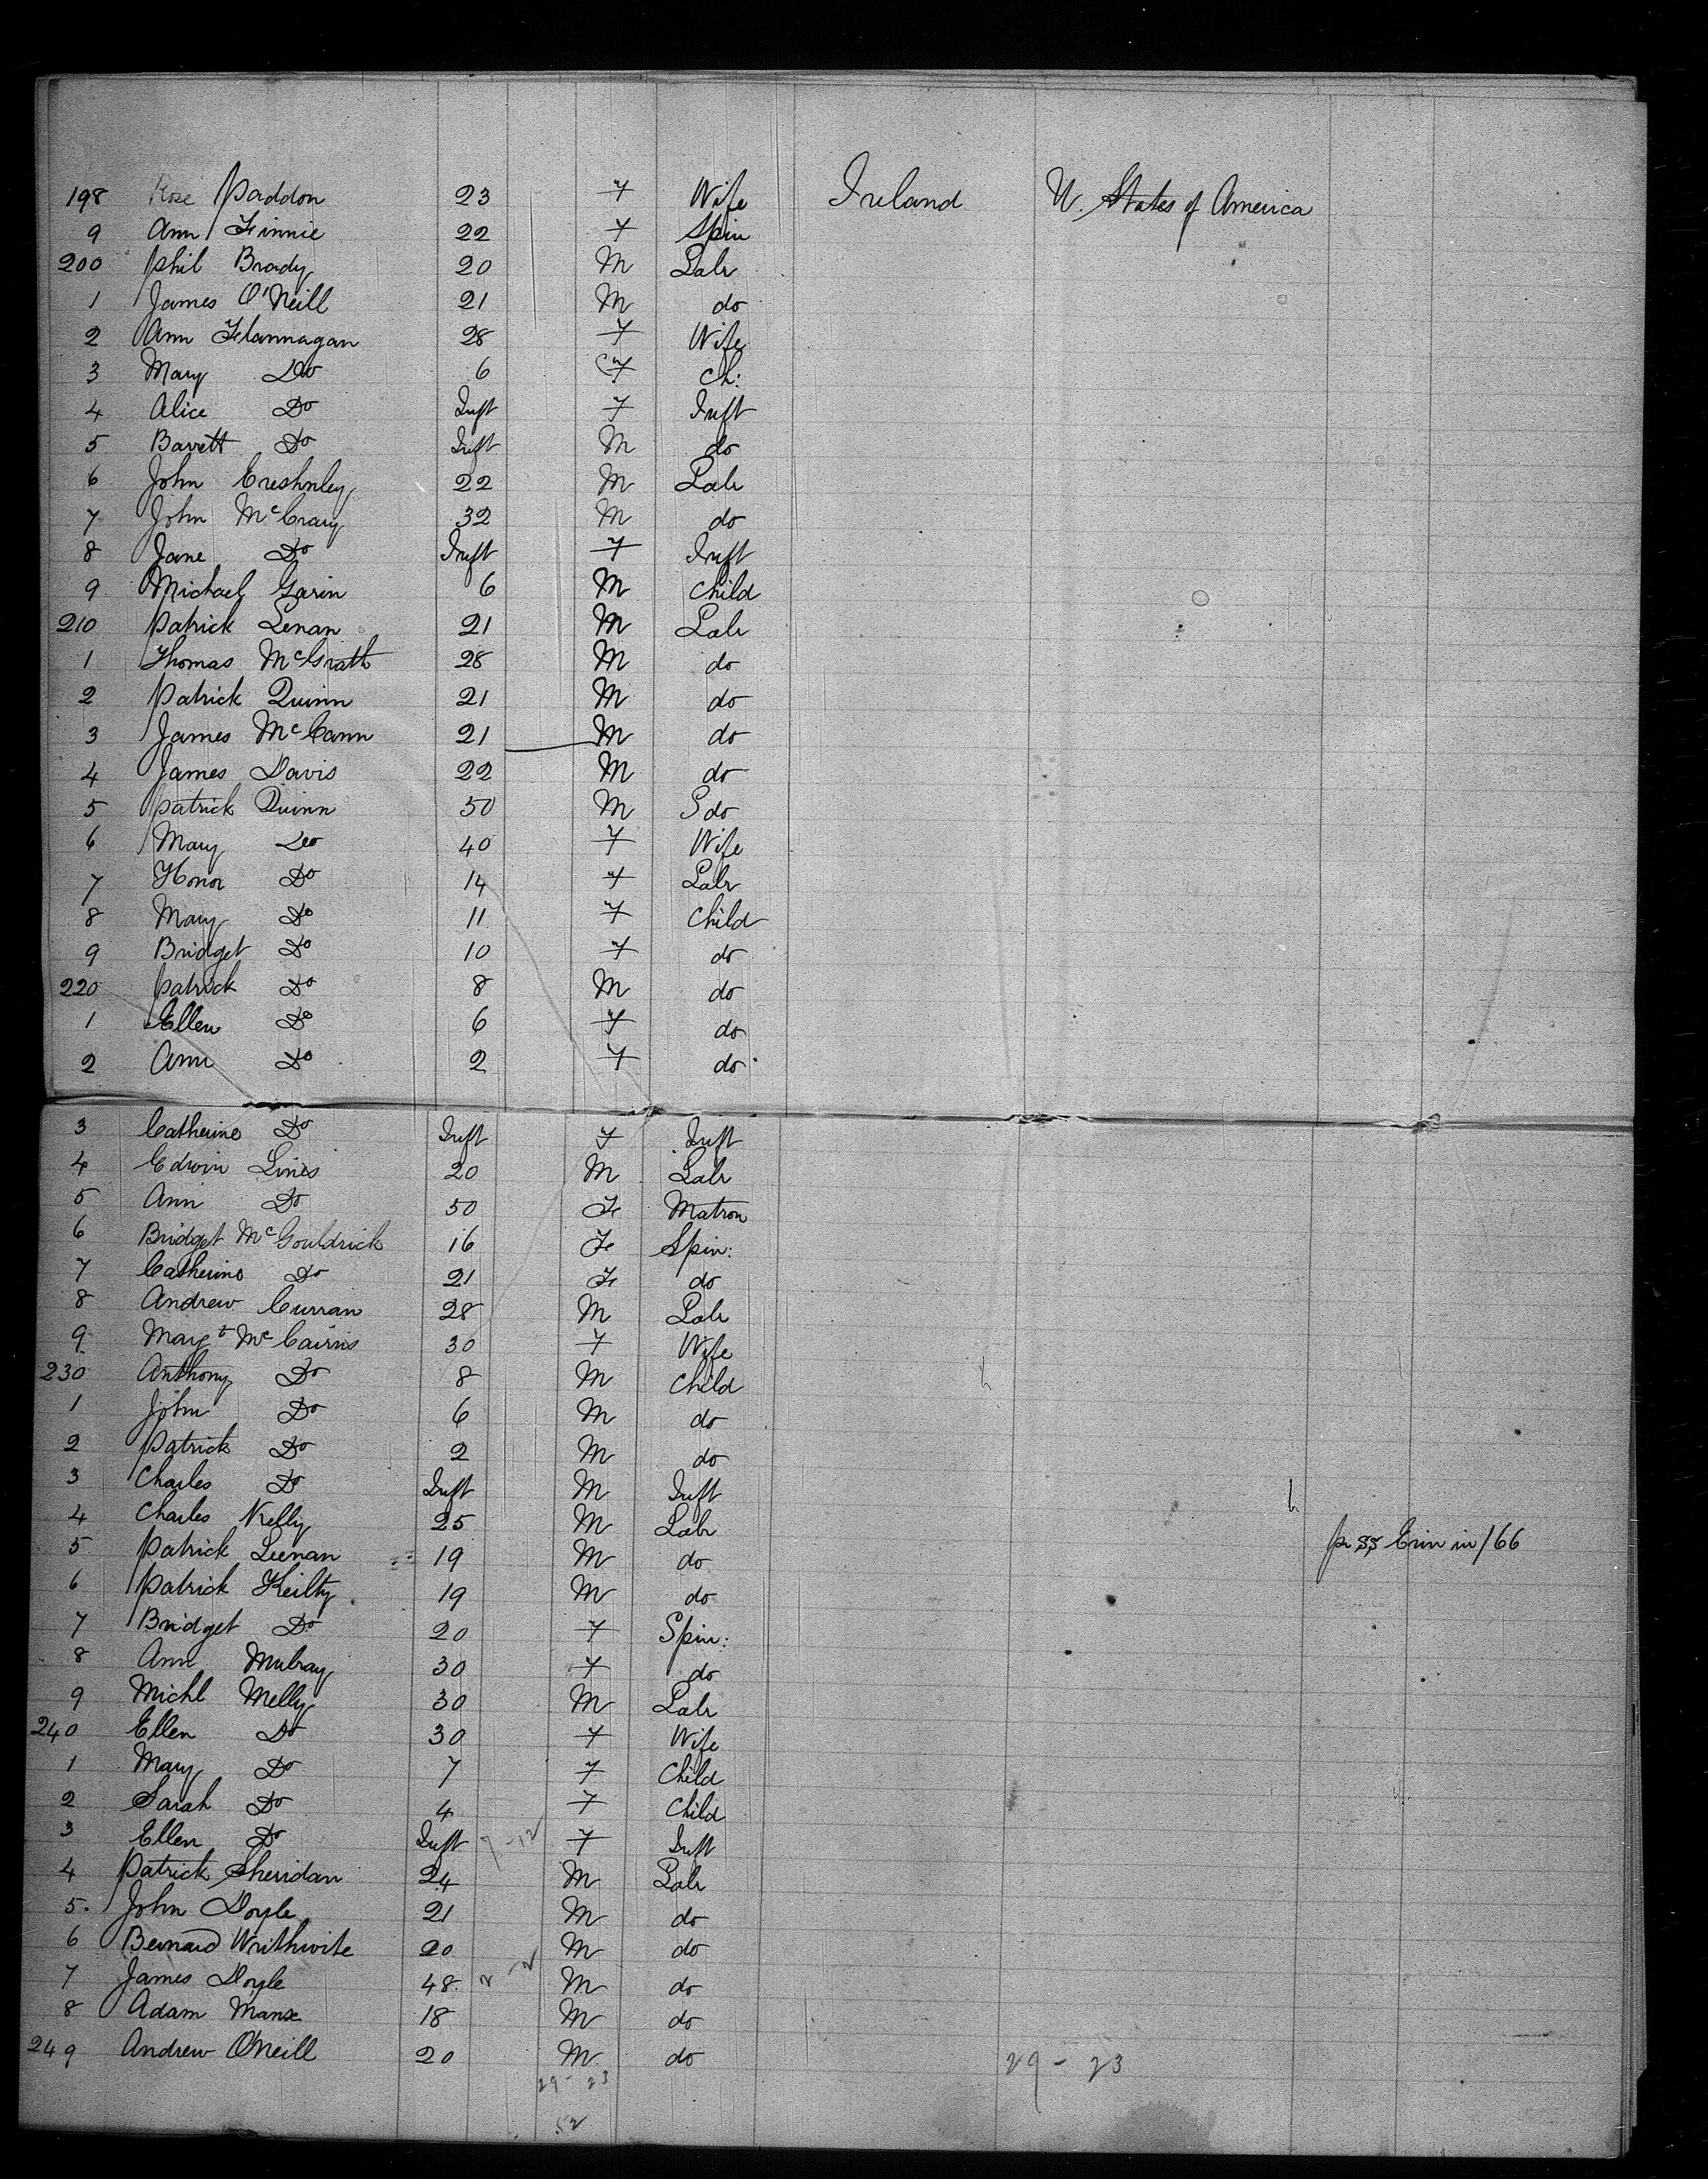 198 Rose Paddon 23 F Wife Ireland U. States of America
9 Ann Finnie 22 F Spin
200 Phil Brady 20 M Labr
1 James O'Neill 21 M do
2 Ann Flannagan 28 F Wife
3 Mary Do 6 F Ch:
4 Alice Do Inft F Inft
5 Barett Do Inft M do
6 John Creshnley 22 M Labr
7 John McCrary 32 M do
8 Jane Do Inft F Inft
9 Michael Garin 6 M Child
210 Patrick Lenan 21 M Labr
1 Thomas McGrath 28 M do
2 Patrick Quinn 21 M do
3 James McCann 21 M do
4 James Davis 22 M do
5 Patrick Quinn 50 M do
6 Mary Do 40 F Wife
7 Honor Do 14 F Labr
8 Mary Do 11 F Child
9 Bridget Do 10 F do
220 Patrick Do 8 M do
1 Ellen Do 6 F do
2 Ann Do 2 F do
3 Catherine Do Inft F Inft
4 Edwin Lines 20 M Labr
5 Ann Do 50 Fe Matron
6 Bridget McGouldrick 16 Fe Spin:
7 Catherine Do 21 Fe do
8 Andrew Curran 28 M Labr
9 Margt McCairns 30 F Wife
230 Anthony Do 8 M Child
1 John Do 6 M do
2 Patrick Do 2 M do
3 Charles Do Inft M Inft
4 Charles Kelly 25 M Labr
5 Patrick Leenan 19 M do p SS Erin in/66
6 Patrick Keilty 19 M do
7 Bridget Do 20 F Spin:
8 Ann Mulray 30 F do
9 Michl Melly 30 M Labr
240 Ellen Do 30 F Wife
1 Mary Do 7 F Child
2 Sarah Do 4 F Child
3 Ellen Do Inft 7-12 F Inft
4 Patrick Sheridan 24 M Labr
5. John Doyle 21 M do
6 Bernard Writhwite 20 M do
7 James Doyle 48 M do
8 Adam Manx 18 M do
249 Andrew O'Neill 20 M do
29-23 29-23
52